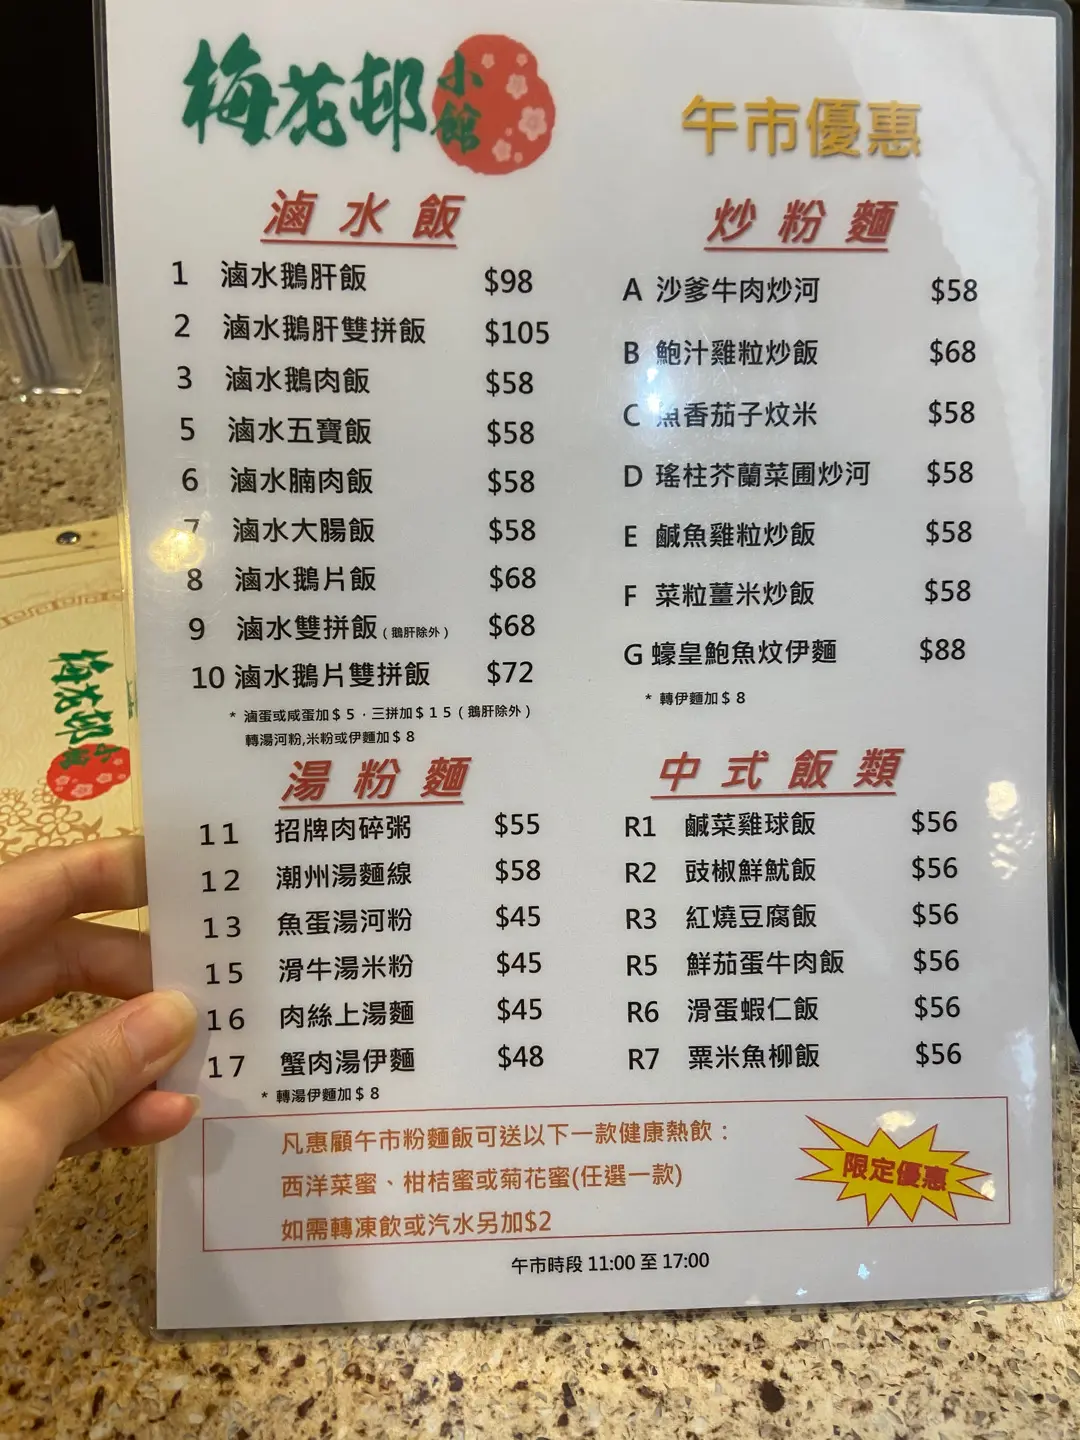 梅花邨小館
午市優惠
滷水飯
1 滷水鵝肝飯 $98
2 滷水鵝肝雙拼飯 $105
3 滷水鵝肉飯 $58
5 滷水五寶飯 $58
6 滷水腩肉飯 $58
7 滷水大腸飯 $58
8 滷水鵝片飯 $68
9 滷水雙拼飯(鵝肝除外) $68
10 滷水鵝片雙拼飯 $72
* 滷蛋或咸蛋加$5．三拼加$15(鵝肝除外)
轉湯河粉,米粉或伊麵加$8
炒粉麵
A 沙爹牛肉炒河 $58
B 鮑汁雞粒炒飯 $68
C 魚香茄子炆米 $58
D 瑤柱芥蘭菜圃炒河 $58
E 鹹魚雞粒炒飯 $58
F 菜粒薑米炒飯 $58
G 蠔皇鮑魚炆伊麵 $88
* 轉伊麵加$8
湯粉麵
11 招牌肉碎粥 $55
12 潮州湯麵線 $58
13 魚蛋湯河粉 $45
15 滑牛湯米粉 $45
16 肉絲上湯麵 $45
17 蟹肉湯伊麵 $48
* 轉湯伊麵加$8
中式飯類
R1 鹹菜雞球飯 $56
R2 豉椒鮮魷飯 $56
R3 紅燒豆腐飯 $56
R5 鮮茄蛋牛肉飯 $56
R6 滑蛋蝦仁飯 $56
R7 粟米魚柳飯 $56
凡惠顧午市粉麵飯可送以下一款健康熱飲：
西洋菜蜜、柑桔蜜或菊花蜜(任選一款)
如需轉凍飲或汽水另加$2
限定優惠
午市時段 11:00 至 17:00
梅花邨小館